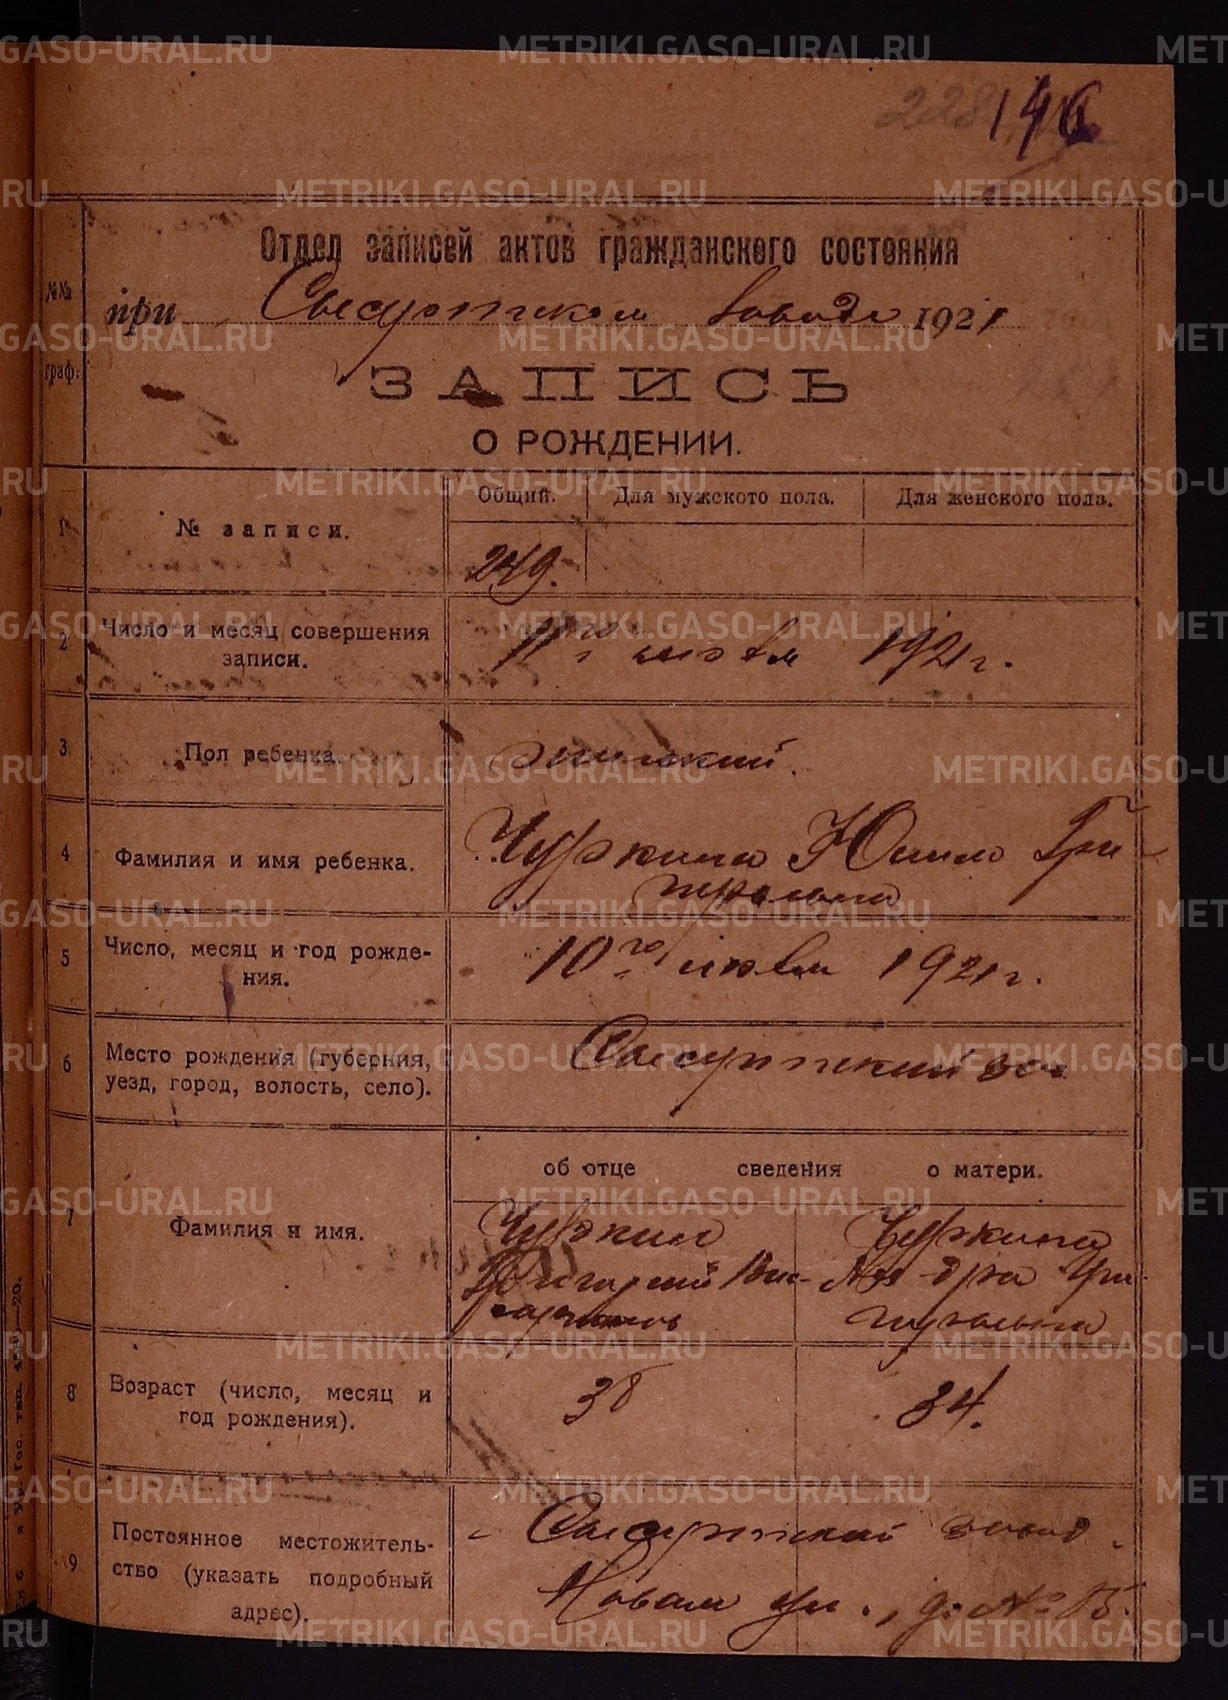 228 146
Отдел записей актов гражданского состояния
при Сысертском заводе 1921
№№ граф.
ЗАПИСЬ
О РОЖДЕНИИ.
1 № записи. Общий. Для мужского пола. Для женского пола.
249.
2 Число и месяц совершения записи. 11го июля 1921 г.
3 Пол ребенка. женский.
4 Фамилия и имя ребенка. Чуркина Юлия Гри
горьевна
5 Число, месяц и год рожде-
ния. 10го июля 1921 г.
6 Место рождения (губерния,
уезд, город, волость, село). Сысертский зав.
об отце сведения о матери.
7 Фамилия и имя.
Чуркин Чуркина
Григорий Алек-дра Гри
горьевна
8 Возраст (число, месяц и
год рождения). 38 34.
9 Постоянное местожитель-
ство (указать подробный
адрес).
Сысертский завод
Новая ул., д. №
METRIKI.GASO-URAL.RU